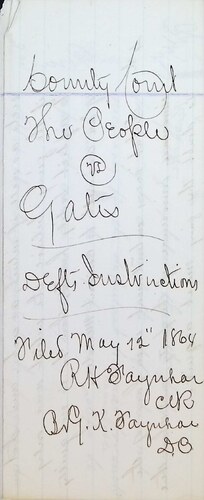 County Court
The People
vs
Gates
Defts Instructions
Filed May 12" 1864
R H
Clk
By G. K.
DC